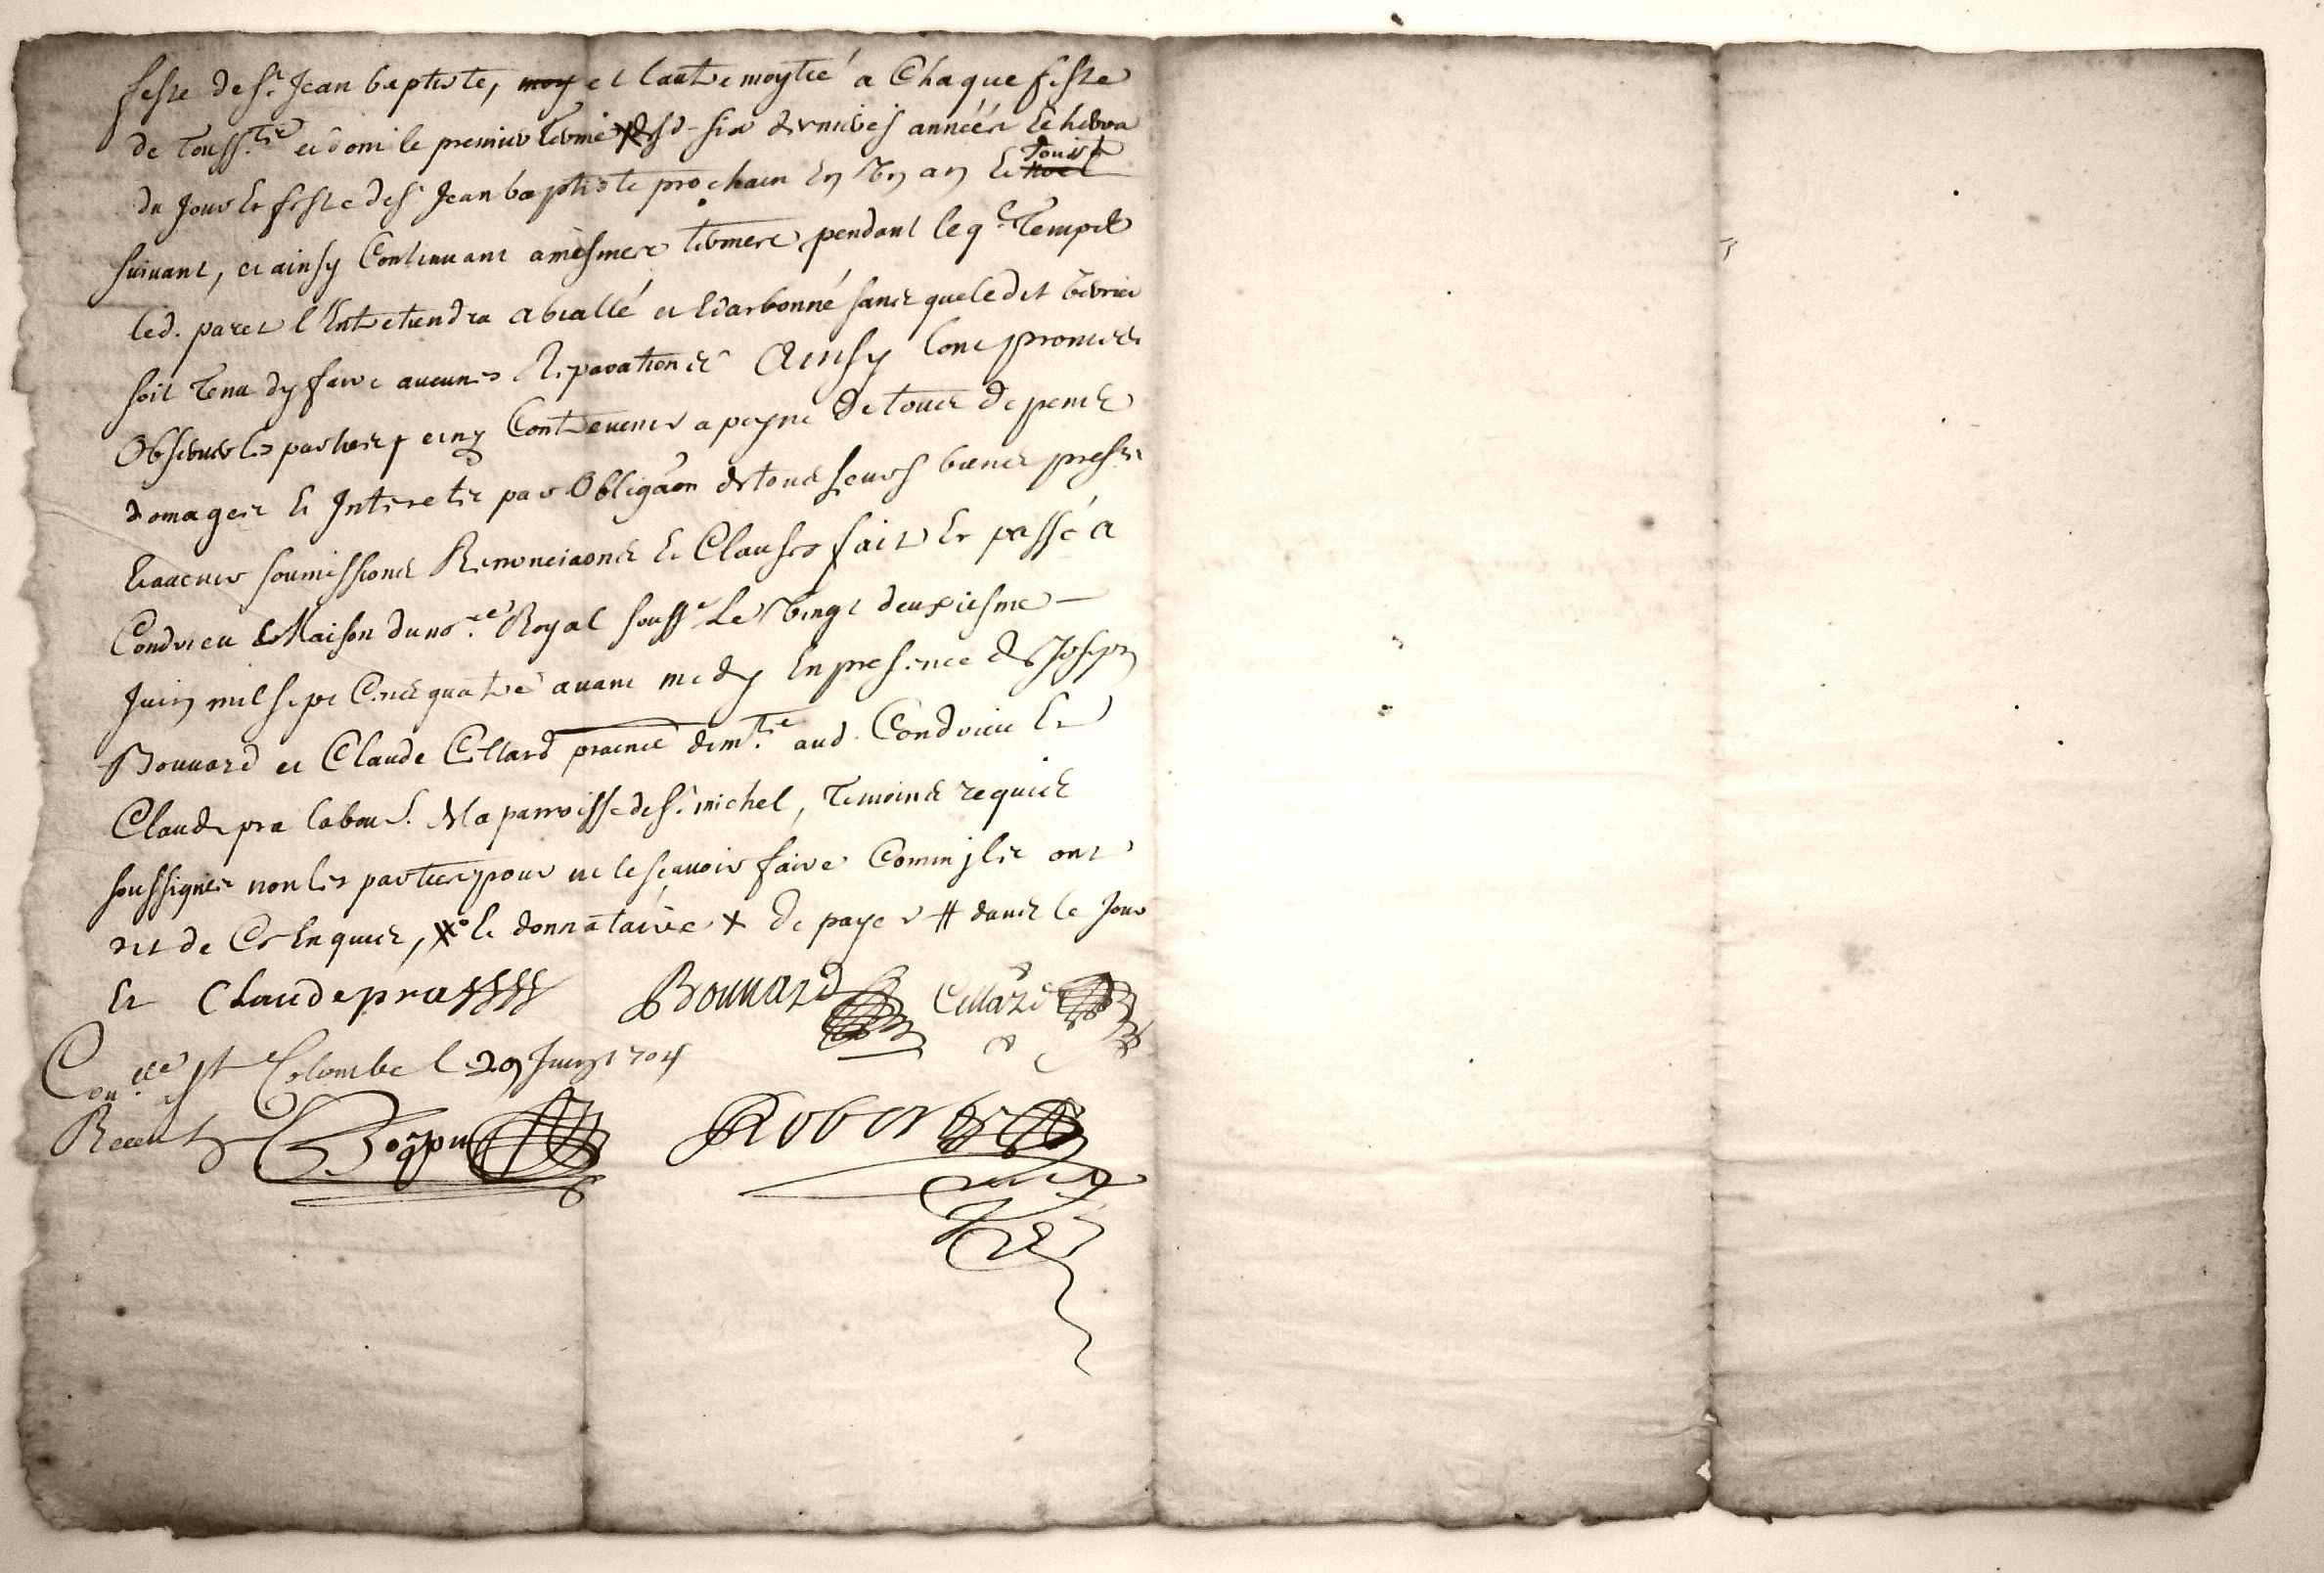 feste de st Jean baptiste, moy et lautre moytié a Chaque feste
de Touss.ts et dont le premier terme desd. six dernieres années Eschevra
du Jour et feste de st Jean baptiste prochain En Un an Et Touss.t noel
suivant, et ainsy Continuant a mesmes termes pendant leq.l Temps
led. l'Entretiendra sans que ledit
soit Tenu dy faire aucunes Reparations Ainsy Lont promis
Observer les parties et ny Contrevenir a peyne de tous depens
domages Et Interets par Obligaon de tous leurs biens
soumissions Renonciaons Et Clauses fait Et passé a
Condrieu Maison du no.re Royal souss.e Le Vingt deuxiesme
Juin mil sept Cents quatre avant midy En presence de Joseph
Bouvard et Claude Cellard dem.ts aud. Condrieu Et
Claude pra labou.r de la parroisse de st michel, Temoins requis
soussignes non les parties pour ne le sçavoir faire Comm jls ont
dit de Ce Enquis, le donnataire + de payer # dans le Jour
Et Claude pra Bouvard Cellard
Con.lle a st Colombe le 29 Juin 1704
Receu Robert